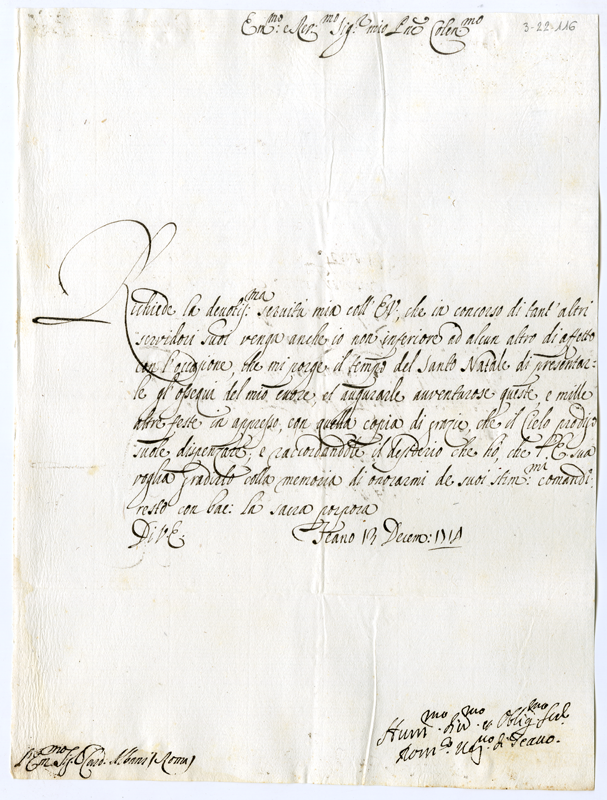 Em.mo e Rev.mo Sig.r mio P̃ne Colen.mo
3-22-116
Richiede la devotis:ma servitù mia coll' E.V. che in concorso di tant' altri
servidori suoi venga anche io non inferiore ad alcun altro di affetto
con l'occasione, che mi porge il tempo del Santo Natale di presentar=
le gl'ossequi del mio cuore, et augurarle avventurose queste e mille
altre feste in appresso, con quella copia di grazie, che il Cielo prodigo
suole dispenzare, e raccordandole il desiderio che hò, che l'E. sua
voglia gradirlo colla memoria di onorarmi de suoi stim:mi comandi
resto con bac: la sacra porpora
Di V.E.
Teano 13 Decem:
Hum.mo Div.mo et Oblig.mo
Dom.co Vo di Teano.
Em.mo Sig. Card. Albani (Roma)